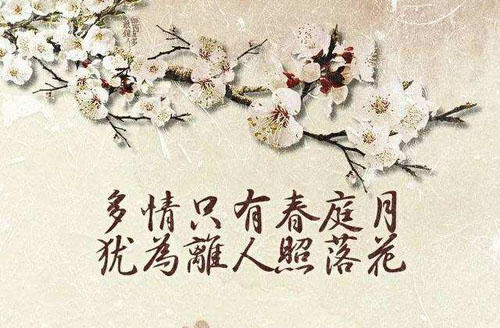 多情只有春庭月
犹為離人照落花